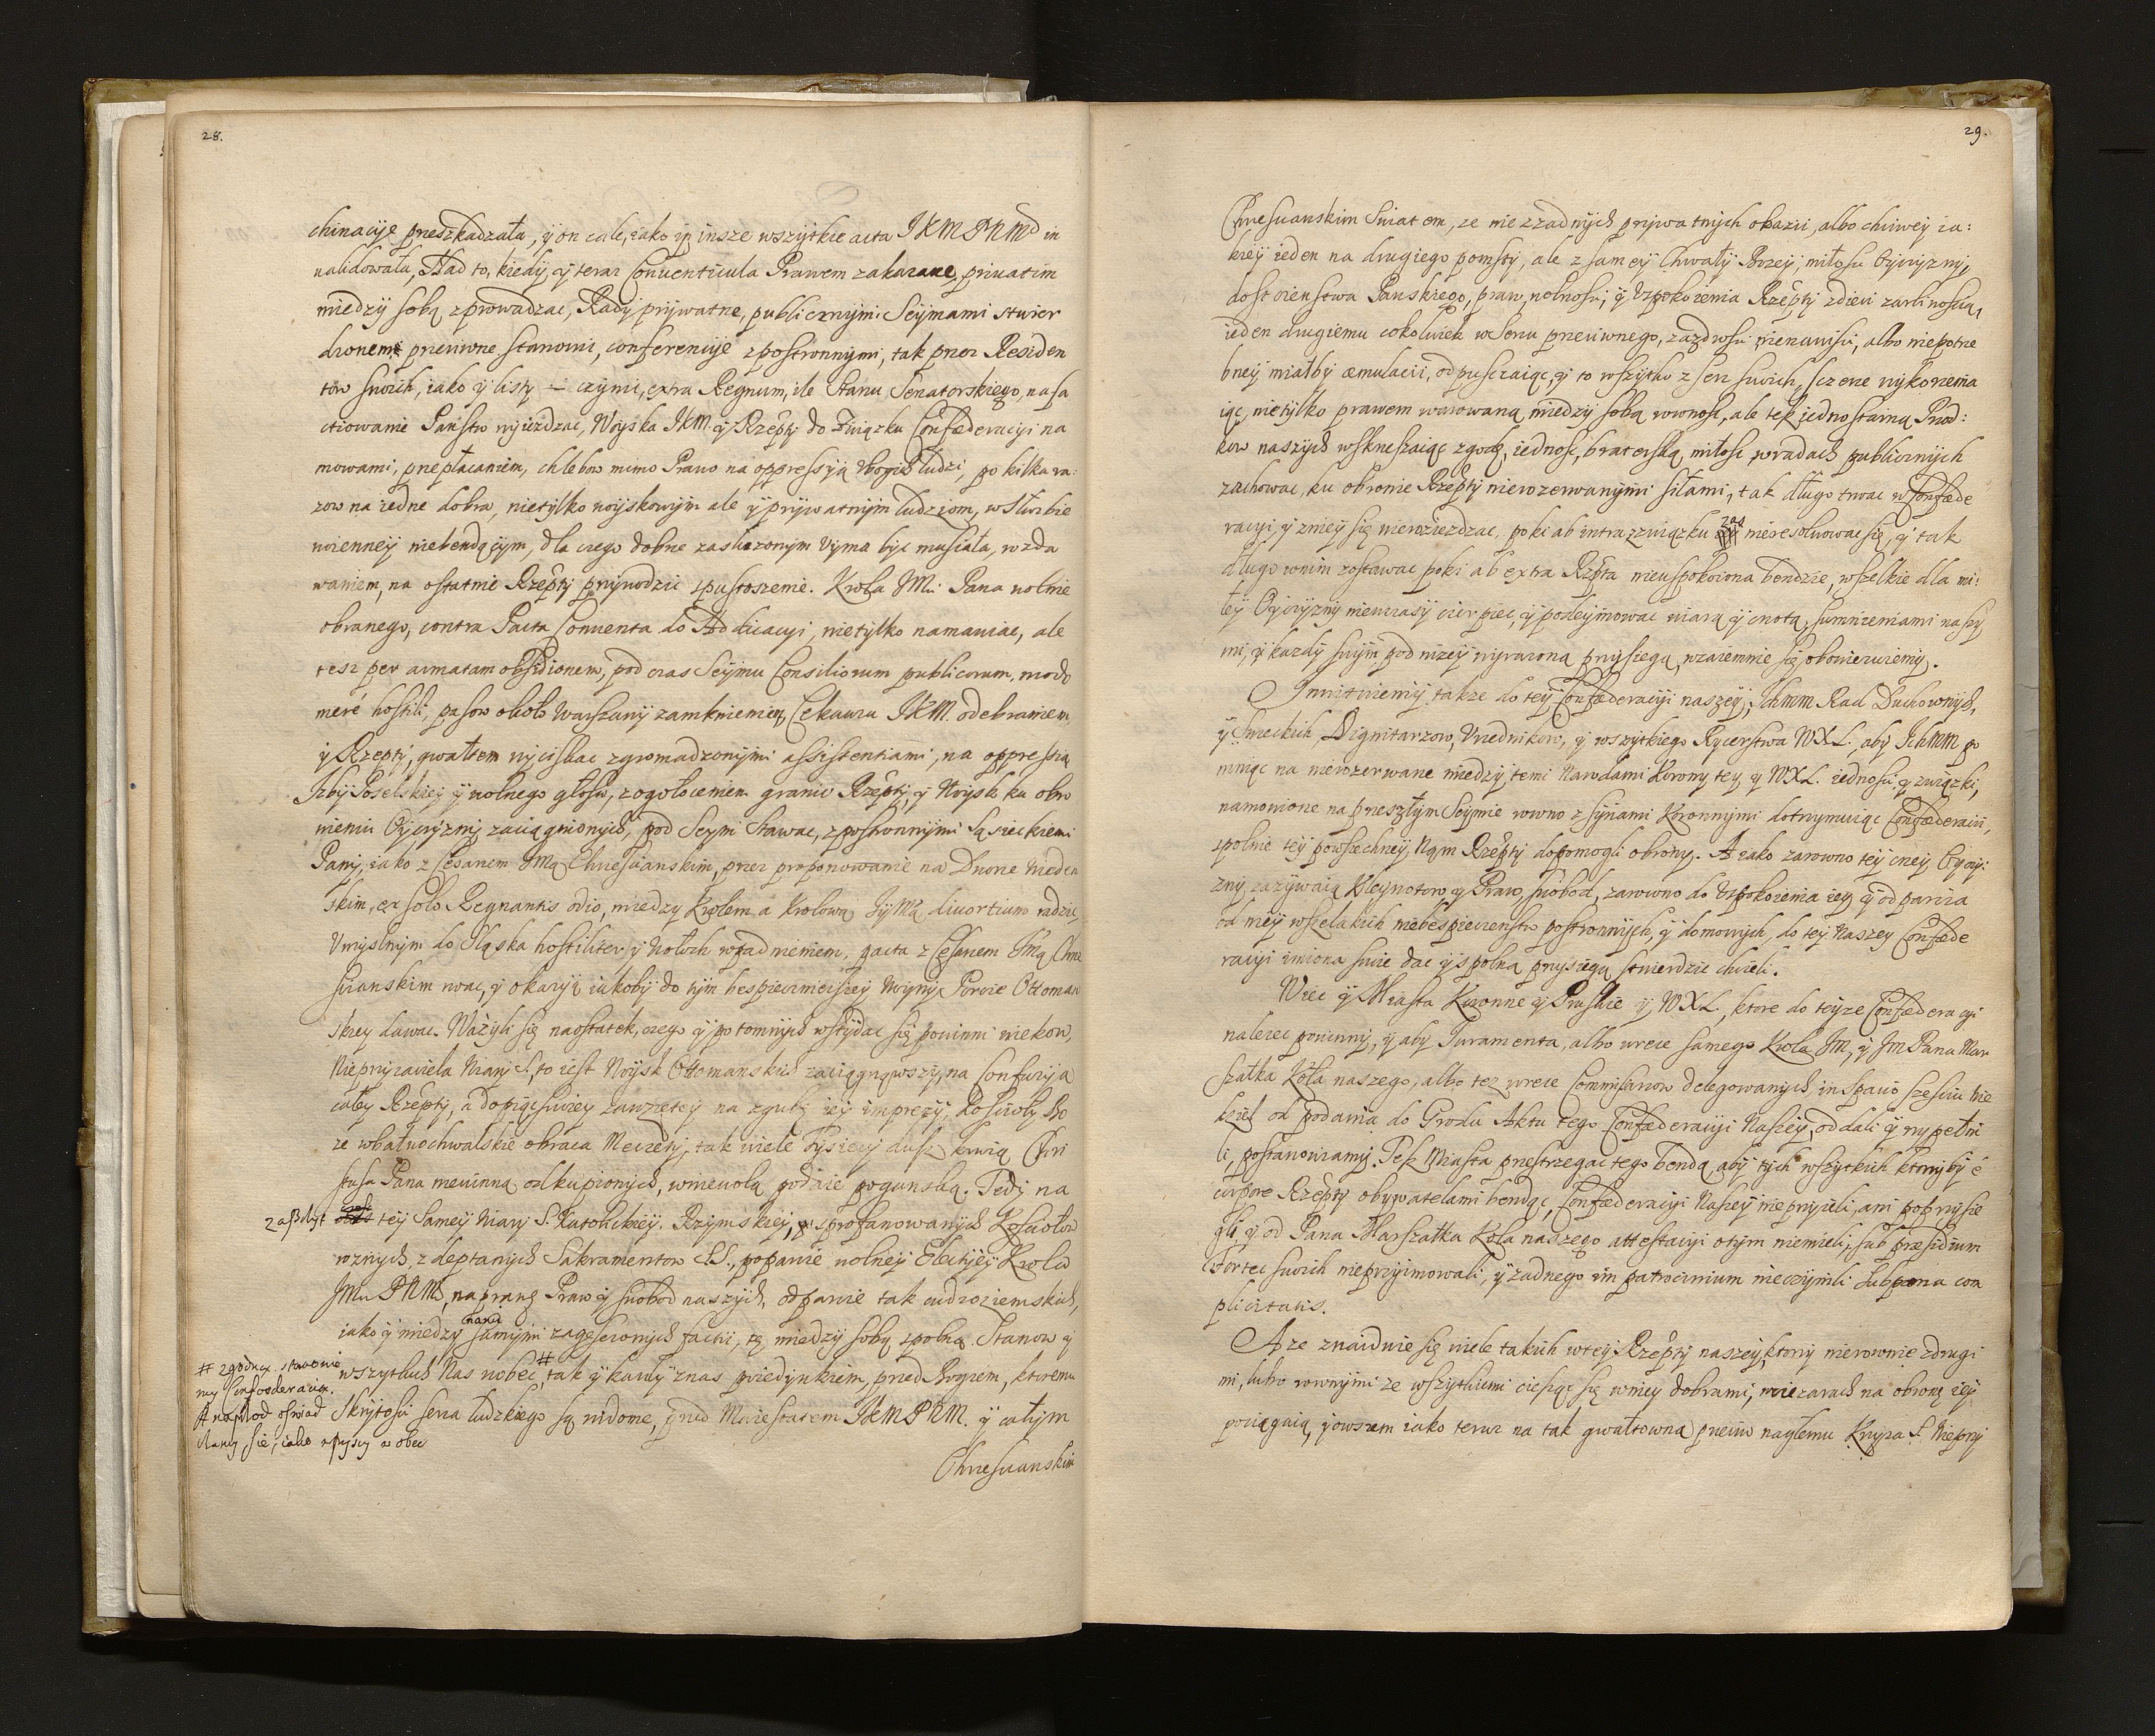 28.
chinacÿe przeszkadzała, ÿ on cale, iako ÿ insze wszÿtkie acta JKM PNMo in
ualidowała, Nad to, kiedÿ, ÿ teraz Conuenticula Prawem zakazane, priuatim
miedzÿ sobą zprowadzac, Radÿ prÿwatne, publicznÿmi Seÿmami stwier
dzonemi przeciwne stanowic, conferencÿe zpostronnÿmi, tak przez Residen
tow swoich, iako ÿ listÿ czÿnic, extra Regnum, ile Stanu Senatorskiego, na sa
ctiowanie Panstw wÿiezdzac, Woÿska JKM. ÿ Rzeptÿ do Związku Confœderacÿi na
mowami, przepłacaniem, chlebow mimo Prawo na oppressÿą vbogich ludzi, po kilka ra:
zow na iedne dobra, nietÿlko woÿskowÿm ale ÿ prÿwatnÿm ludziom, wsłuzbie
woienneÿ niebendącÿm, dla czego dobrze zasłuzonÿm vÿma bÿc musiała, rozda
waniem, na ostatnie Rzeptÿ przÿwodzic zpustoszenie. Krola JMci Pana wolnie
obranego, contra Pacta Conuenta do Abdicacÿi, nietÿlko namawiac, ale
tesz per armatam obsidionem, pod czas Seÿmu Consiliorum publicorum, modo
meré hostili, pasow około Warszawÿ zamknieniem, Cekauzu JKM. odebraniem,
ÿ Rzeptÿ, gwałtem wÿciskac zgromadzonÿmi assistentiami, na oppressią
Jzbÿ Poselskieÿ ÿ wolnego głosu, zogołoceniem granic Rzeptÿ, ÿ Woÿsk ku obro
nieniu Oÿczÿznÿ zaciągnionÿch, pod Seÿm stawac, zpostronnÿmi Sąsieckiemi
Panÿ, iako z Cesarzem JMą Chrzescianskim, przez proponowanie na Dworze Wieden
skim, ex solo Regnantis odio, miedzy Krolem a Krolową JÿMą diuortium radzic,
Vmÿslnÿm do Sląska hostiliter ÿ Włoch wpadnieniem, pacta z Cesarzem JMą Chrze
scianskim rwac, ÿ okazÿi iakobÿ do tÿm bespiecznieÿszeÿ Woÿnÿ Porcie Ottoman
skiey dawac. Wazÿli się naostatek, czego ÿ potomnÿch wstÿdac się powinni wiekow,
Nieprzÿiaciela Wiarÿ S. to iest Woÿsk Ottomanskich zaciągnąwszÿ, na Confuzÿą
całeÿ Rzeptÿ, a dopiąc swoieÿ zawzieteÿ na zgubę ieÿ imprezÿ, Koscioły Bo
ze wbałwochwalskie obraca Meczetÿ, tak wiele Tÿsiecÿ dusz krwią Chri
stusa Pana niewinną odkupionÿch, wniewolą podaie pogunską. Tedÿ na
zaszczÿt teÿ sameÿ Wiarÿ S. Katolickieÿ. Rzÿmskieÿ, sprofanowanÿch Kosciołow
roznÿch, zdeptanÿch Sakramentow SS., poparcie wolneÿ Electÿeÿ Krola
JMci PNMo, naprawę Praw ÿ swobod naszÿch, odparcie tak cudzoziemskich,
iako ÿ miedzy nami samÿmi zagęsczonych factii, tę miedzÿ sobą spolną Stanow ÿ
wszytkich Nas wobec, # tak ÿ kazdÿ znas poiedÿnkiem, przed Bogiem, ktoremu
# zgodney stanowie
my Confoederacią.
# naprzod oswiad
Skrÿtosci serca ludzkiego są widome, przed Maiestatem JKM PNM. ÿ całÿm
czamy sie, iako wszyscy w obec
Chrzescianskim
29.
Chrzescianskim swiatem, ze nie zzadnÿch prÿwatnÿch okazii, albo chciweÿ ia:
kieÿ ieden na drugiego pomstÿ, ale z sameÿ Chwałÿ Bozeÿ, miłosci Oÿczyznÿ,
dostoienstwa Panskiego, praw, wolnosci, ÿ Vzpokoienia Rzeptÿ zdiеci zarliwoscią,
ieden drugiemu cokolwiek wsercu przeciwnego, zazdrosci nienawisci, albo niepotrze
bneÿ miałbÿ æmulacii, odpusczaiąc, ÿ to wszÿtko z serc swoich, sczerze wÿkorzenia
iąc, nietÿlko prawem warowaną miedzÿ sobą rownosc, ale tesz iednostainą Przod:
kow naszÿch wskrzeszaiąc zgodę, iednosc, braterską miłosc wradach publicznÿch
zachowac, ku obronie Rzeptÿ nierozerwanÿmi siłami, tak długo trwac w Confœde
racyi, ÿ zniey się nierozieżdzac, poki ab intra zzwiązku zas nieresoluowac się, ÿ tak
długo wnim zostawac poki ab extra Rzpta nieuspokoiona bendzie, wszelkie dla mi:
łeÿ Oÿczÿznÿ niewczasÿ cierpiec, ÿ podeÿmowac wiarą ÿ cnotą, sumnieniami naszÿ
mi, ÿ kazdÿ swÿm, pod nizeÿ wyrazoną przysiegą, wzaiemnie się obowiezuiemÿ.
Jnuituiemÿ takze do teÿ Confœderacÿi naszeÿ, Jchmm Rad Duchownÿch,
ÿ Swieckich, Dignitarzow, Vrzednikow, ÿ wszÿtkiego Rycerstwa WXL. abÿ IchMM po
mniąc na nierozerwane miedzÿ temi Narodami Korony teÿ ÿ WXL. iednosci ÿ zwiąski,
namowione na przeszłÿm Seÿmie rowno z sÿnami Koronnÿmi dotrzymuiąc Confœderacii,
spolnie teÿ powszechneÿ Nam Rzeptÿ dopomogli obrony. A iako zarowno teÿ cneÿ Oÿczÿ:
znÿ zazÿwaią Kleÿnotow ÿ Praw, swobod, zarowno do Vspokoienia ieÿ ÿ odparcia
od nieÿ wszelakich niebespieczenstw postronnÿch, ÿ domowÿch, do teÿ Naszeÿ Confœde
racÿi imiona swoie dac ÿ spolną przysiegą stwierdzic chcieli.
Wiec ÿ Miasta Koronne ÿ Pruskie ÿ WXL, ktore do teÿze Confœderacyi
nalezec powinnÿ, ÿ abÿ Juramenta, albo wrece samego Krola JM, ÿ Jm Pana Mar
szałka Koła naszego, albo tez wrece Commisarzow delegowanÿch in spatio szesciu Nie
dziel od podania do Grodu Aktu tego Confœderacÿi Naszeÿ, oddali ÿ wÿpełni
li, postanowiamÿ. Tesz Miasta przestrzegac tego bendą, abÿ tÿch wszÿtkich ktorzÿbÿ é
corpore Rzeptÿ obywatelami bendąc, Confœderacÿi Naszeÿ nieprzÿieli, ani poprzÿsie
gli, ÿ od Pana Marszałka Koła naszego attestacÿi otÿm niemieli, sub præsidium
Fortec swoich nieprzÿimowali, ÿ zadnego im patrocinium nieczÿnili sub pœna com
plicitatis.
A ze znaiduie się wiele takich wteÿ Rzeptÿ naszeÿ, ktorzÿ nierownie zdrugi
mi, lubo rownÿmi ze wszÿtkiemi ciesząc się wnieÿ dobrami, wciezarach na obronę ieÿ
pociągaią, ÿ owszem iako teraz na tak gwałtowną przeciw nagłemu Krzyza S. Nieprzÿ